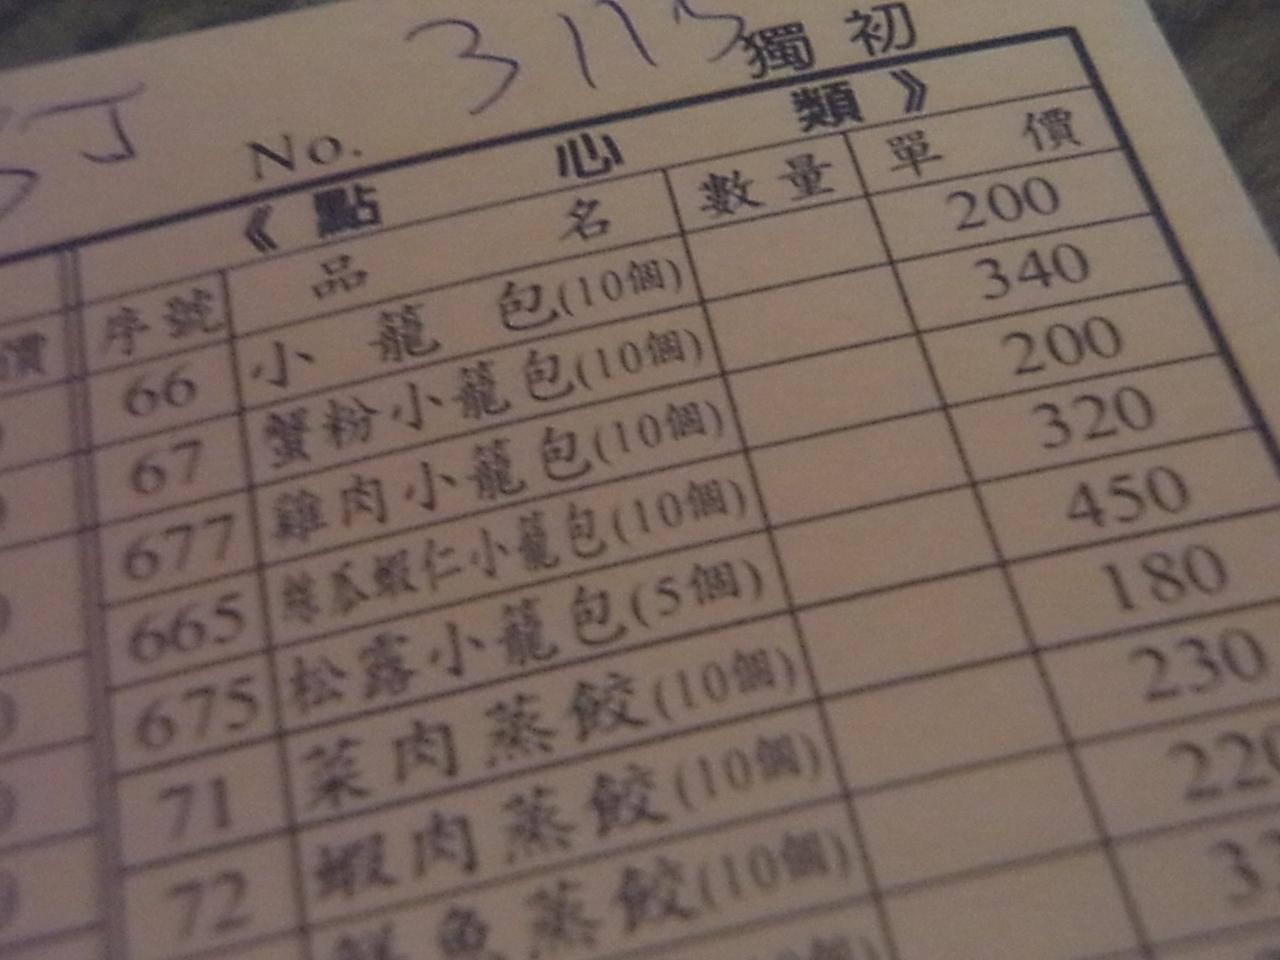 No. 3113
獨 初
《 點 心 類 》
序號 品 名 數量 單 價
66 小 籠 包(10個) 200
67 蟹粉小籠包(10個) 340
677 雞肉小籠包(10個) 200
665 絲瓜蝦仁小籠包(10個) 320
675 松露小籠包(5個) 450
71 菜肉蒸餃(10個) 180
72 蝦肉蒸餃(10個) 230
魚蒸餃(10個) 220